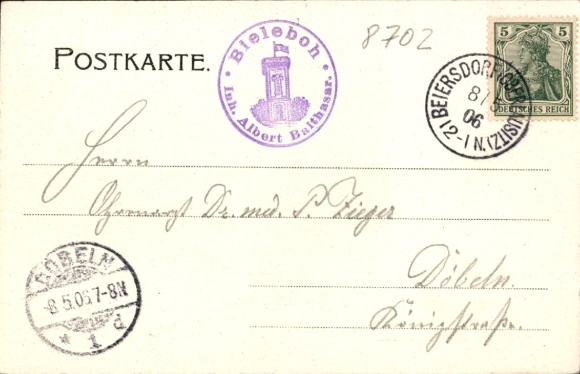 POSTKARTE.
• Bieleboh •
Inh. Albert Balthasar.
8702
BEIERSDORF (OBERLAUSITZ)
8/5
06
12-1 N.
5 5
DEUTSCHES REICH
Herrn
Ohrenarzt Dr. med. P. Zieger
Döbeln.
Königstraße.
DÖBELN
8.5.06.7-8N
* 1 d